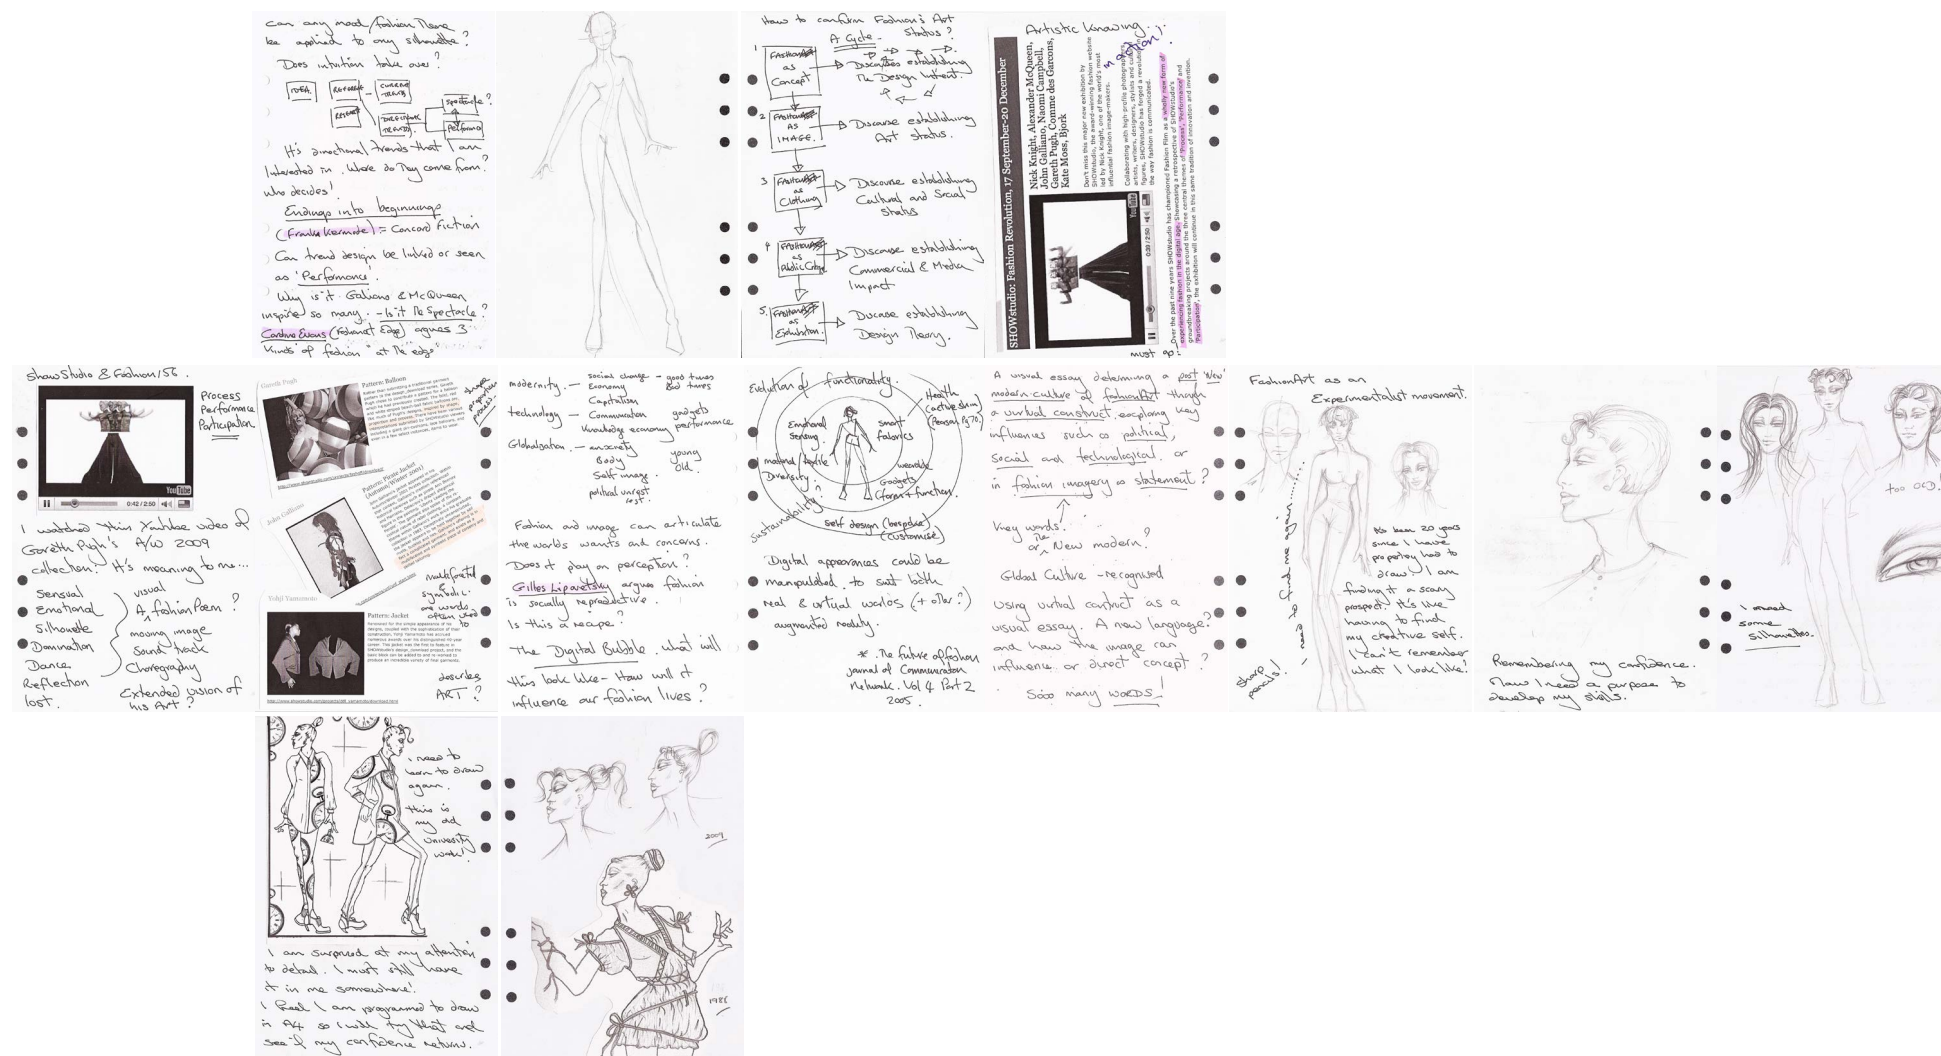 Can any mood/fashion Theme
be applied to any silhouette?
Does intuition take over?
IDEA.
RESEARCH
CURRENT
TRENDS
DIRECTIONAL
TRENDS
Spectacle?
Performance
It's directional trends that I am
interested in. Where do They come from?
Who decides!
Endings into beginnings
(Frank Kermode) = Concord Fiction
Can trend design be linked or seen
as 'Performance'.
Why is it Galliano & McQueen
inspire so many. - Is it The Spectacle?
Caroline Evans (Fashion at Edge) argues 3
kinds of fashion "at the edge"
How to confirm Fashion's Art
Status?
A Cycle.
1
FASHIONART
as
Concept
Discourses establishing
The Design Intent.
2
FASHIONART
AS
IMAGE.
Discourse establishing
Art Status.
3
FASHIONART
as
Clothing
Discourse establishing
Cultural and Social
Status
4
FASHIONART
as
Public Critique
Discourse establishing
Commercial & Media
Impact
5.
FASHIONART
as
Exhibition.
Discourse establishing
Design Theory.
Artistic Knowing..
in action!
SHOWstudio: Fashion Revolution, 17 September-20 December
Nick Knight, Alexander McQueen,
John Galliano, Naomi Campbell,
Gareth Pugh, Comme des Garons,
Kate Moss, Bjork
Don't miss this major new exhibition by
SHOWstudio, the award-winning fashion website
led by Nick Knight, one of the world's most
influential fashion image-makers.
Collaborating with high-profile photographers,
artists, writers, designers, stylists and cultural
figures, SHOWstudio has forged a revolution in
the way fashion is communicated.
YouTube
0:39 / 2:50
Over the past nine years SHOWstudio has championed Fashion Film as a wholly new form of
experiencing fashion in the digital age. Showcasing a retrospective of SHOWstudio's
groundbreaking projects around the three central themes of 'Process', 'Performance' and
'Participation', the exhibition will continue in this same tradition of innovation and invention.
must go!
ShowStudio & Fashion/156.
YouTube
0:42 / 2:50
Process
Performance
Participation
I watched this Youtube video of
Gareth Pugh's A/W 2009
collection. It's meaning to me...
Sensual
Emotional
Silhouette
Domination
Dance
Reflection
lost.
visual
A fashion Poem?
moving image
Sound track
Choregraphy
Extended vision of
his Art?
Gareth Pugh
Pattern: Balloon
John Galliano
Pattern: Pirate Jacket
(Autumn/Winter 2001)
Yohji Yamamoto
Pattern: Jacket
multifaceted
symbolic
are words
often used
to
describe
ART?
modernity. — social change - good times
Economy Bad times
Capitalism
technology — Communication gadgets
Knowledge economy performance
Globalisation. — anxiety young
Body old.
Self image.
political unrest
Fashion and image can articulate
the worlds wants and concerns.
Does it play on perception?
Gilles Lipovetsky argues fashion
is socially reproductive.
Is this a recipe?
The Digital Bubble. what will
this look like - How will it
influence our fashion lives?
Evolution of functionality.
Emotional
Sensing
Smart
fabrics
Health
(active skin)
(Pearson Pg 70)
material/textile
Diversity
wearable
Gadgets
(form + function.
Sustainability
Self design (bespoke)
(customise)
Digital appearances could be
manipulated to suit both
real & virtual worlds (+ other?)
augmented reality.
* The future of fashion
Journal of Communication
Network. Vol 4 Part 2
2005.
A visual essay determining a post 'New'
modern-culture of fashionArt though
a virtual construct, exploring key
influences such as political,
social and technological or
in fashion imagery as statement?
Key words.
or the New modern?
Global Culture - recognised
Using virtual contruct as a
visual essay. A new language?
and how the image can
influence or direct concept?
Sooo many WORDS!
FashionArt as an
Experimentalist movement.
I need to find me again.......
Sharp
pencils!
It's been 20 years
since I have
properly had to
draw. I am
finding it a scary
prospect. It's like
having to find
my creative self.
I can't remember
what I look like!
Remembering my confidence.
Now I need a purpose to
develop my skills.
too OLD!
I need
some
Silhouettes.
I need to
learn to draw
again.
this is
my old
university
work!
I am surprised at my attention
to detail. I must still have
it in me somewhere!
I feel I am programmed to draw
in A4 so I will try that and
see if my confidence returns.
2009
1986